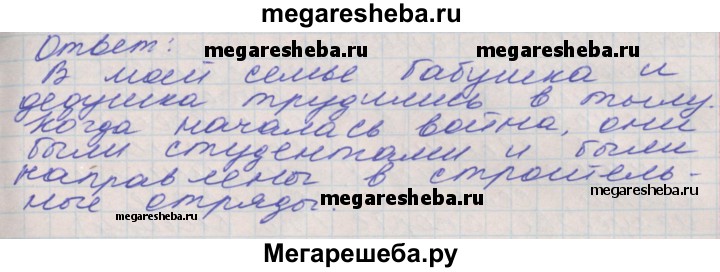 megaresheba.ru
Ответ:
megaresheba.ru
megaresheba.ru
В моей семье бабушка и
дедушка трудились в тылу.
Когда началась война, они
были студентами и были
направлены в строитель-
megaresheba.ru
megaresheba.ru
ные отряды.
megaresheba.ru
Мегарешеба.ру